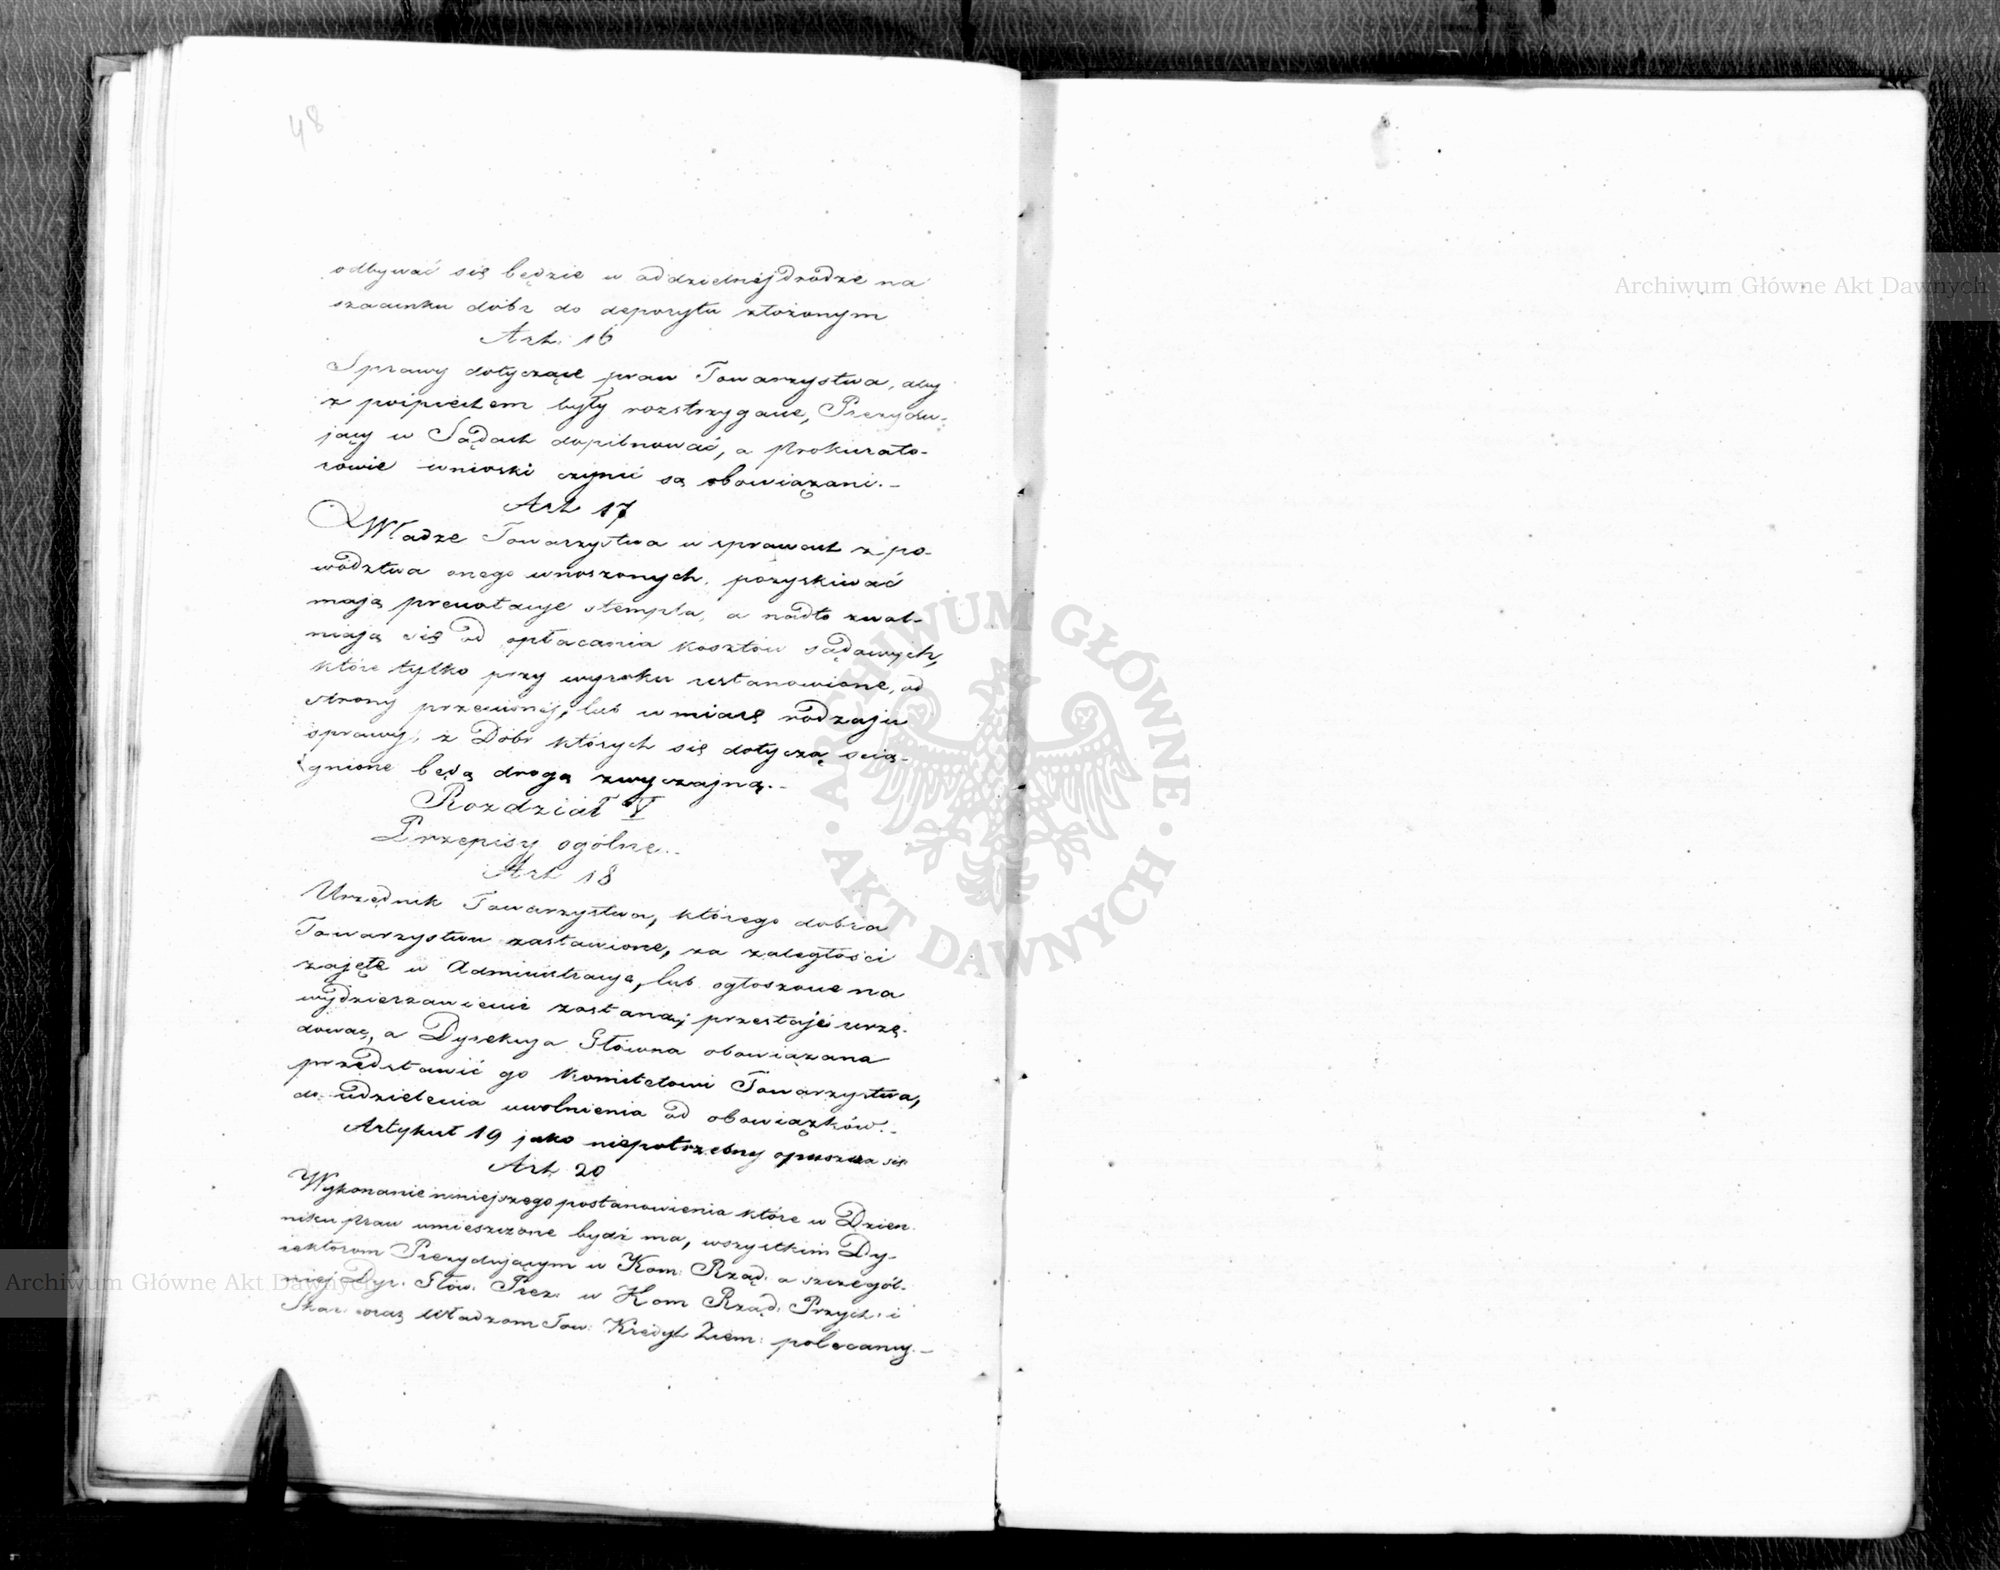 48
odbywać się będzie w oddzielnéj drodze na
szacunku dóbr do depozytu złożonym
Art. 16
Sprawy dotyczące praw Towarzystwa, aby
z pośpiechem były rozstrzygane, Prezydu-
jący w Sądach dopilnować, a Prokurato-
rowie wnioski czynić są obowiązani.-
Art 17
Władze Towarzystwa w sprawach z po-
wództwa onego wnoszonych, pozyskiwać
mają prenotacye stempla, a nadto uwol-
niają się od opłacania kosztów sądowych,
które tylko przy wyroku ustanowione, od
strony przewinnéj, lub w miarę rodzaju
sprawy, z Dóbr których się dotyczą ścią-
gnione będą drogą zwyczajną.-
Rozdział V
Przepisy ogólne.-
Art 18
Urzędnik Towarzystwa, którego dobra
Towarzystwu zastawione, za zaległości
zajęte w Administracye, lub ogłoszone na
wydzierzawienie zostaną, przestaje urzę-
dować, a Dyrekcya Główna obowiązana
przedstawić go Komitetowi Towarzystwa,
do udzielenia uwolnienia od obowiązków.-
Artykuł 19 jako niepotrzebny opuszcza się
Art 20
Wykonanie niniejszego postanowienia które w Dzien-
niku praw umieszczone bydź ma, wszystkim Dy-
rektorom Prezydującym w Kom: Rząd: a szczegól-
niéj Dyr: Głów: Prez: w Kom Rząd: Przych: i
Skar: oraz Władzom Tow: Kredyt Ziem: polecamy.-
Archiwum Główne Akt Dawnych
Archiwum Główne Akt Dawnych
ARCHIWUM GŁÓWNE
AKT DAWNYCH